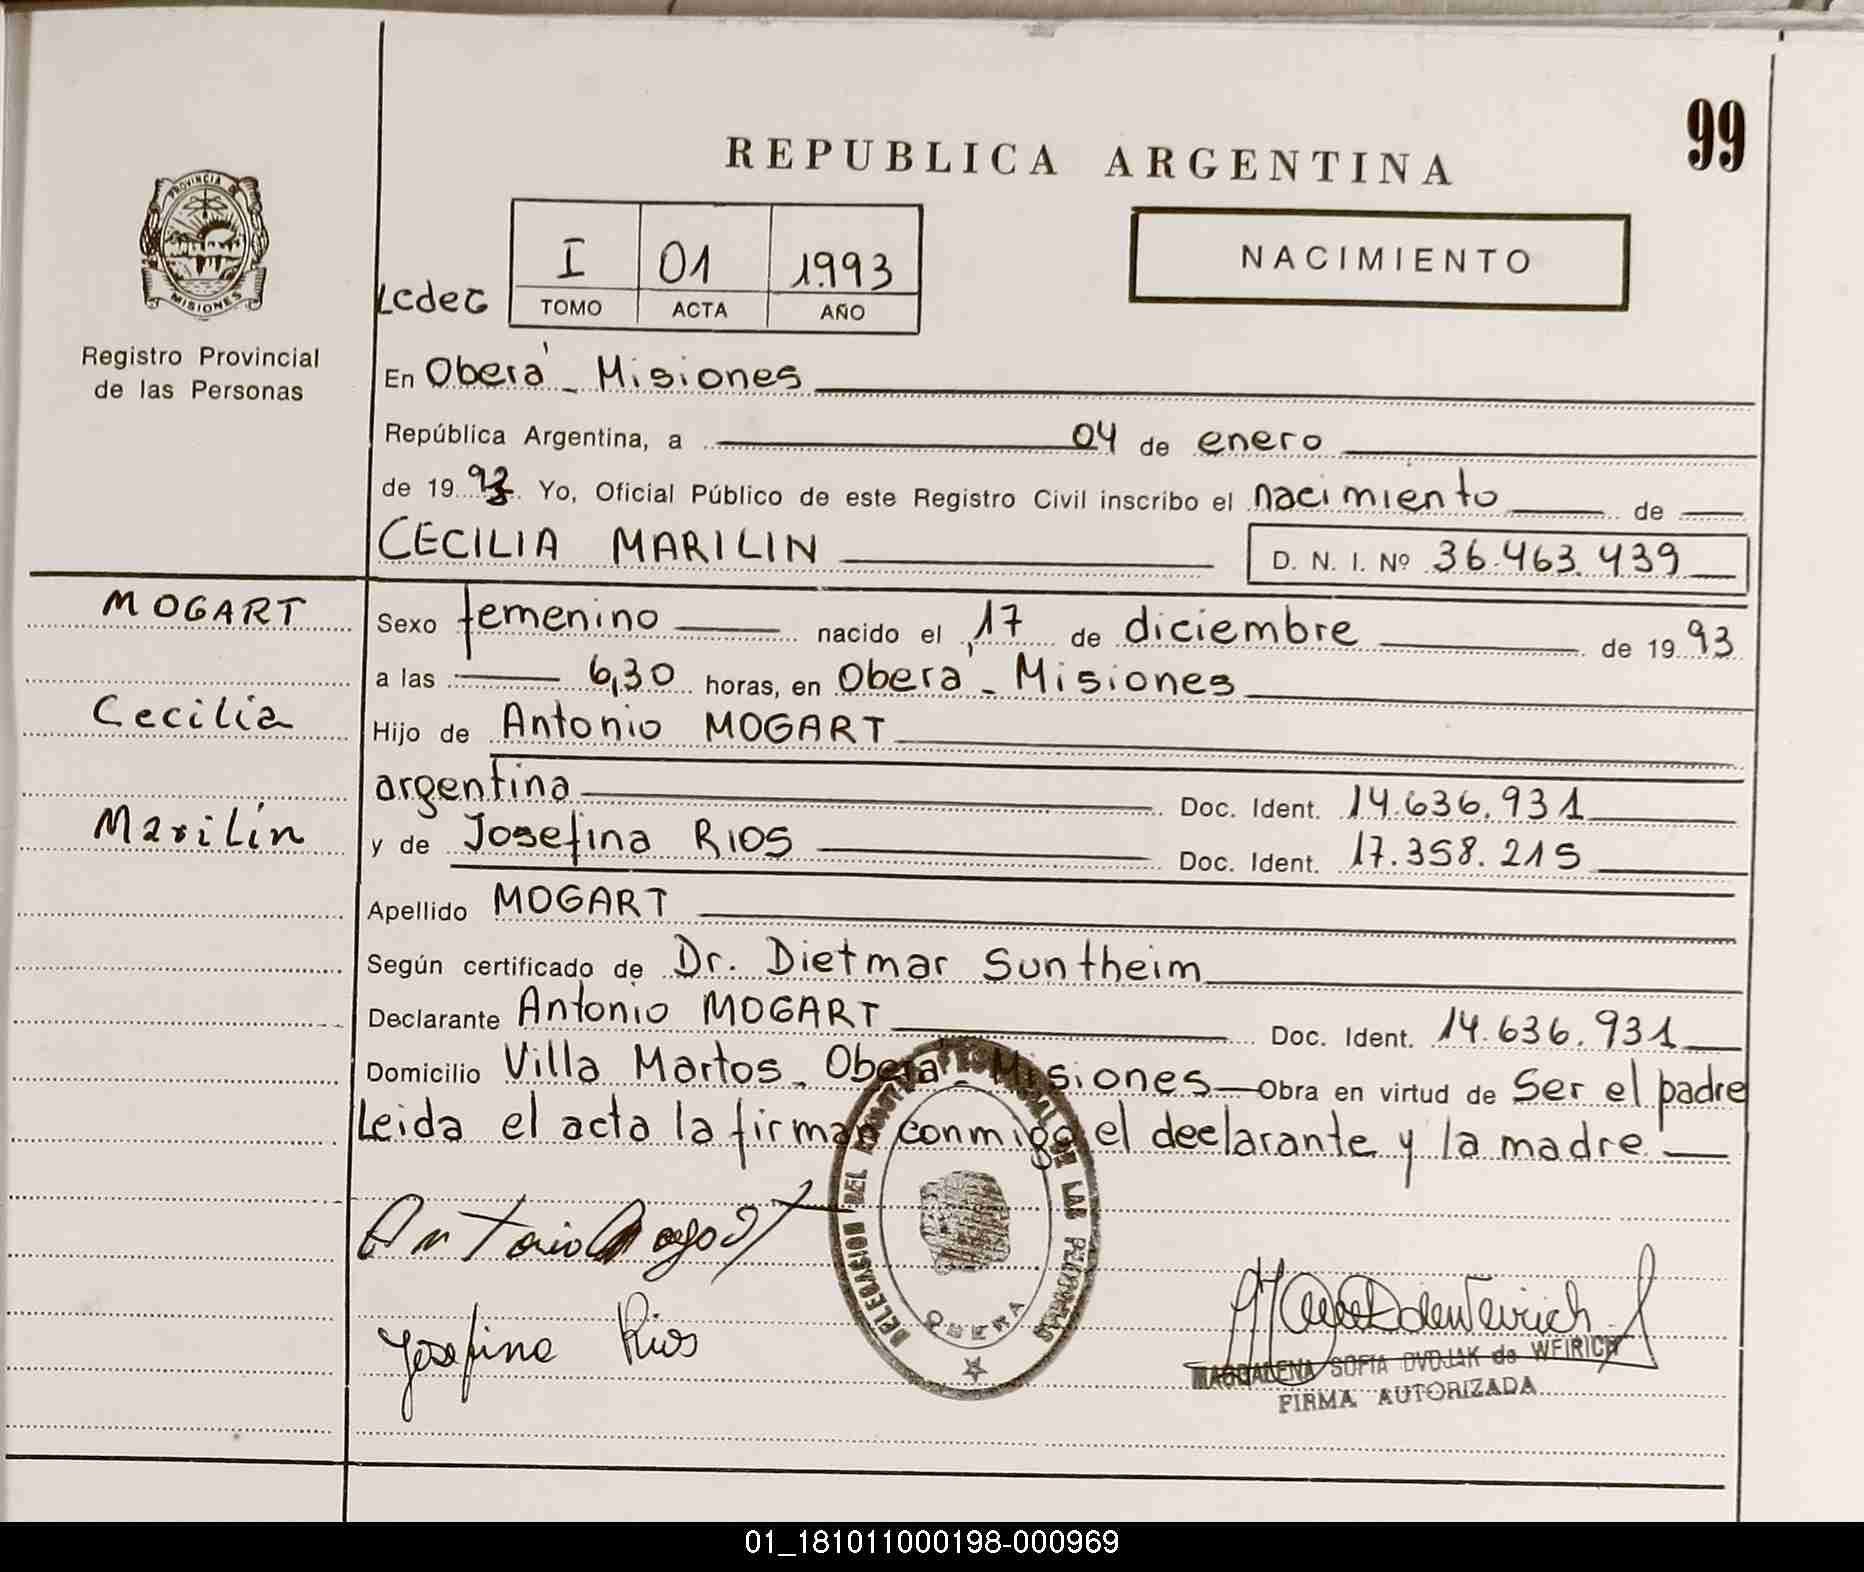 99
REPUBLICA ARGENTINA
PROVINCIA DE
MISIONES
Registro Provincial
de las Personas
I 01 1.993
TOMO ACTA AÑO
NACIMIENTO
En Oberá - Misiones
República Argentina, a 04 de enero
de 19 93 Yo, Oficial Público de este Registro Civil inscribo el nacimiento de
CECILIA MARILIN D. N. I. Nº 36.463.439
MOGART
Cecilia
Marilín
Sexo femenino nacido el 17 de diciembre de 19 93
a las 6,30 horas, en Oberá - Misiones
Hijo de Antonio MOGART
argentina Doc. Ident. 14.636.931
y de Josefina RIOS Doc. Ident. 17.358.215
Apellido MOGART
Según certificado de Dr. Dietmar Suntheim
Declarante Antonio MOGART Doc. Ident. 14.636.931
Domicilio Villa Martos - Oberá - Misiones Obra en virtud de Ser el padre
Leida el acta la firman conmigo el declarante y la madre.
DELEGACION DEL REGISTRO PROVINCIAL DE LAS PERSONAS
OBERA
Antonio Mogart
Josefina Rios
MAGDALENA SOFIA DVOJAK de WEIRICH
FIRMA AUTORIZADA
01_181011000198-000969